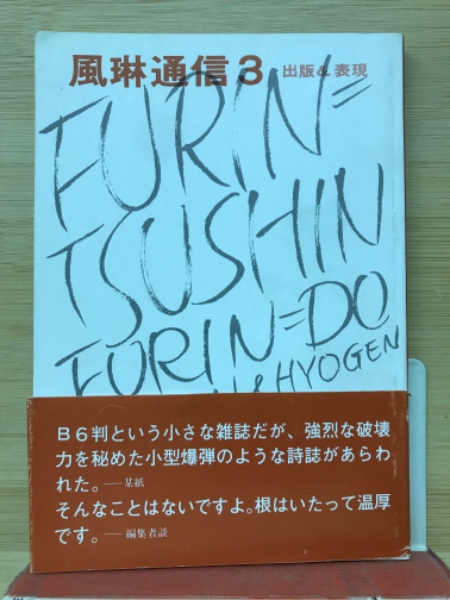 風琳通信3 出版&表現
FURIN=
TSUSHIN
FURIN=DO
& HYOGEN
B6判という小さな雑誌だが、強烈な破壊
力を秘めた小型爆弾のような詩誌があらわ
れた。——某紙
そんなことはないですよ。根はいたって温厚
です。——編集者談